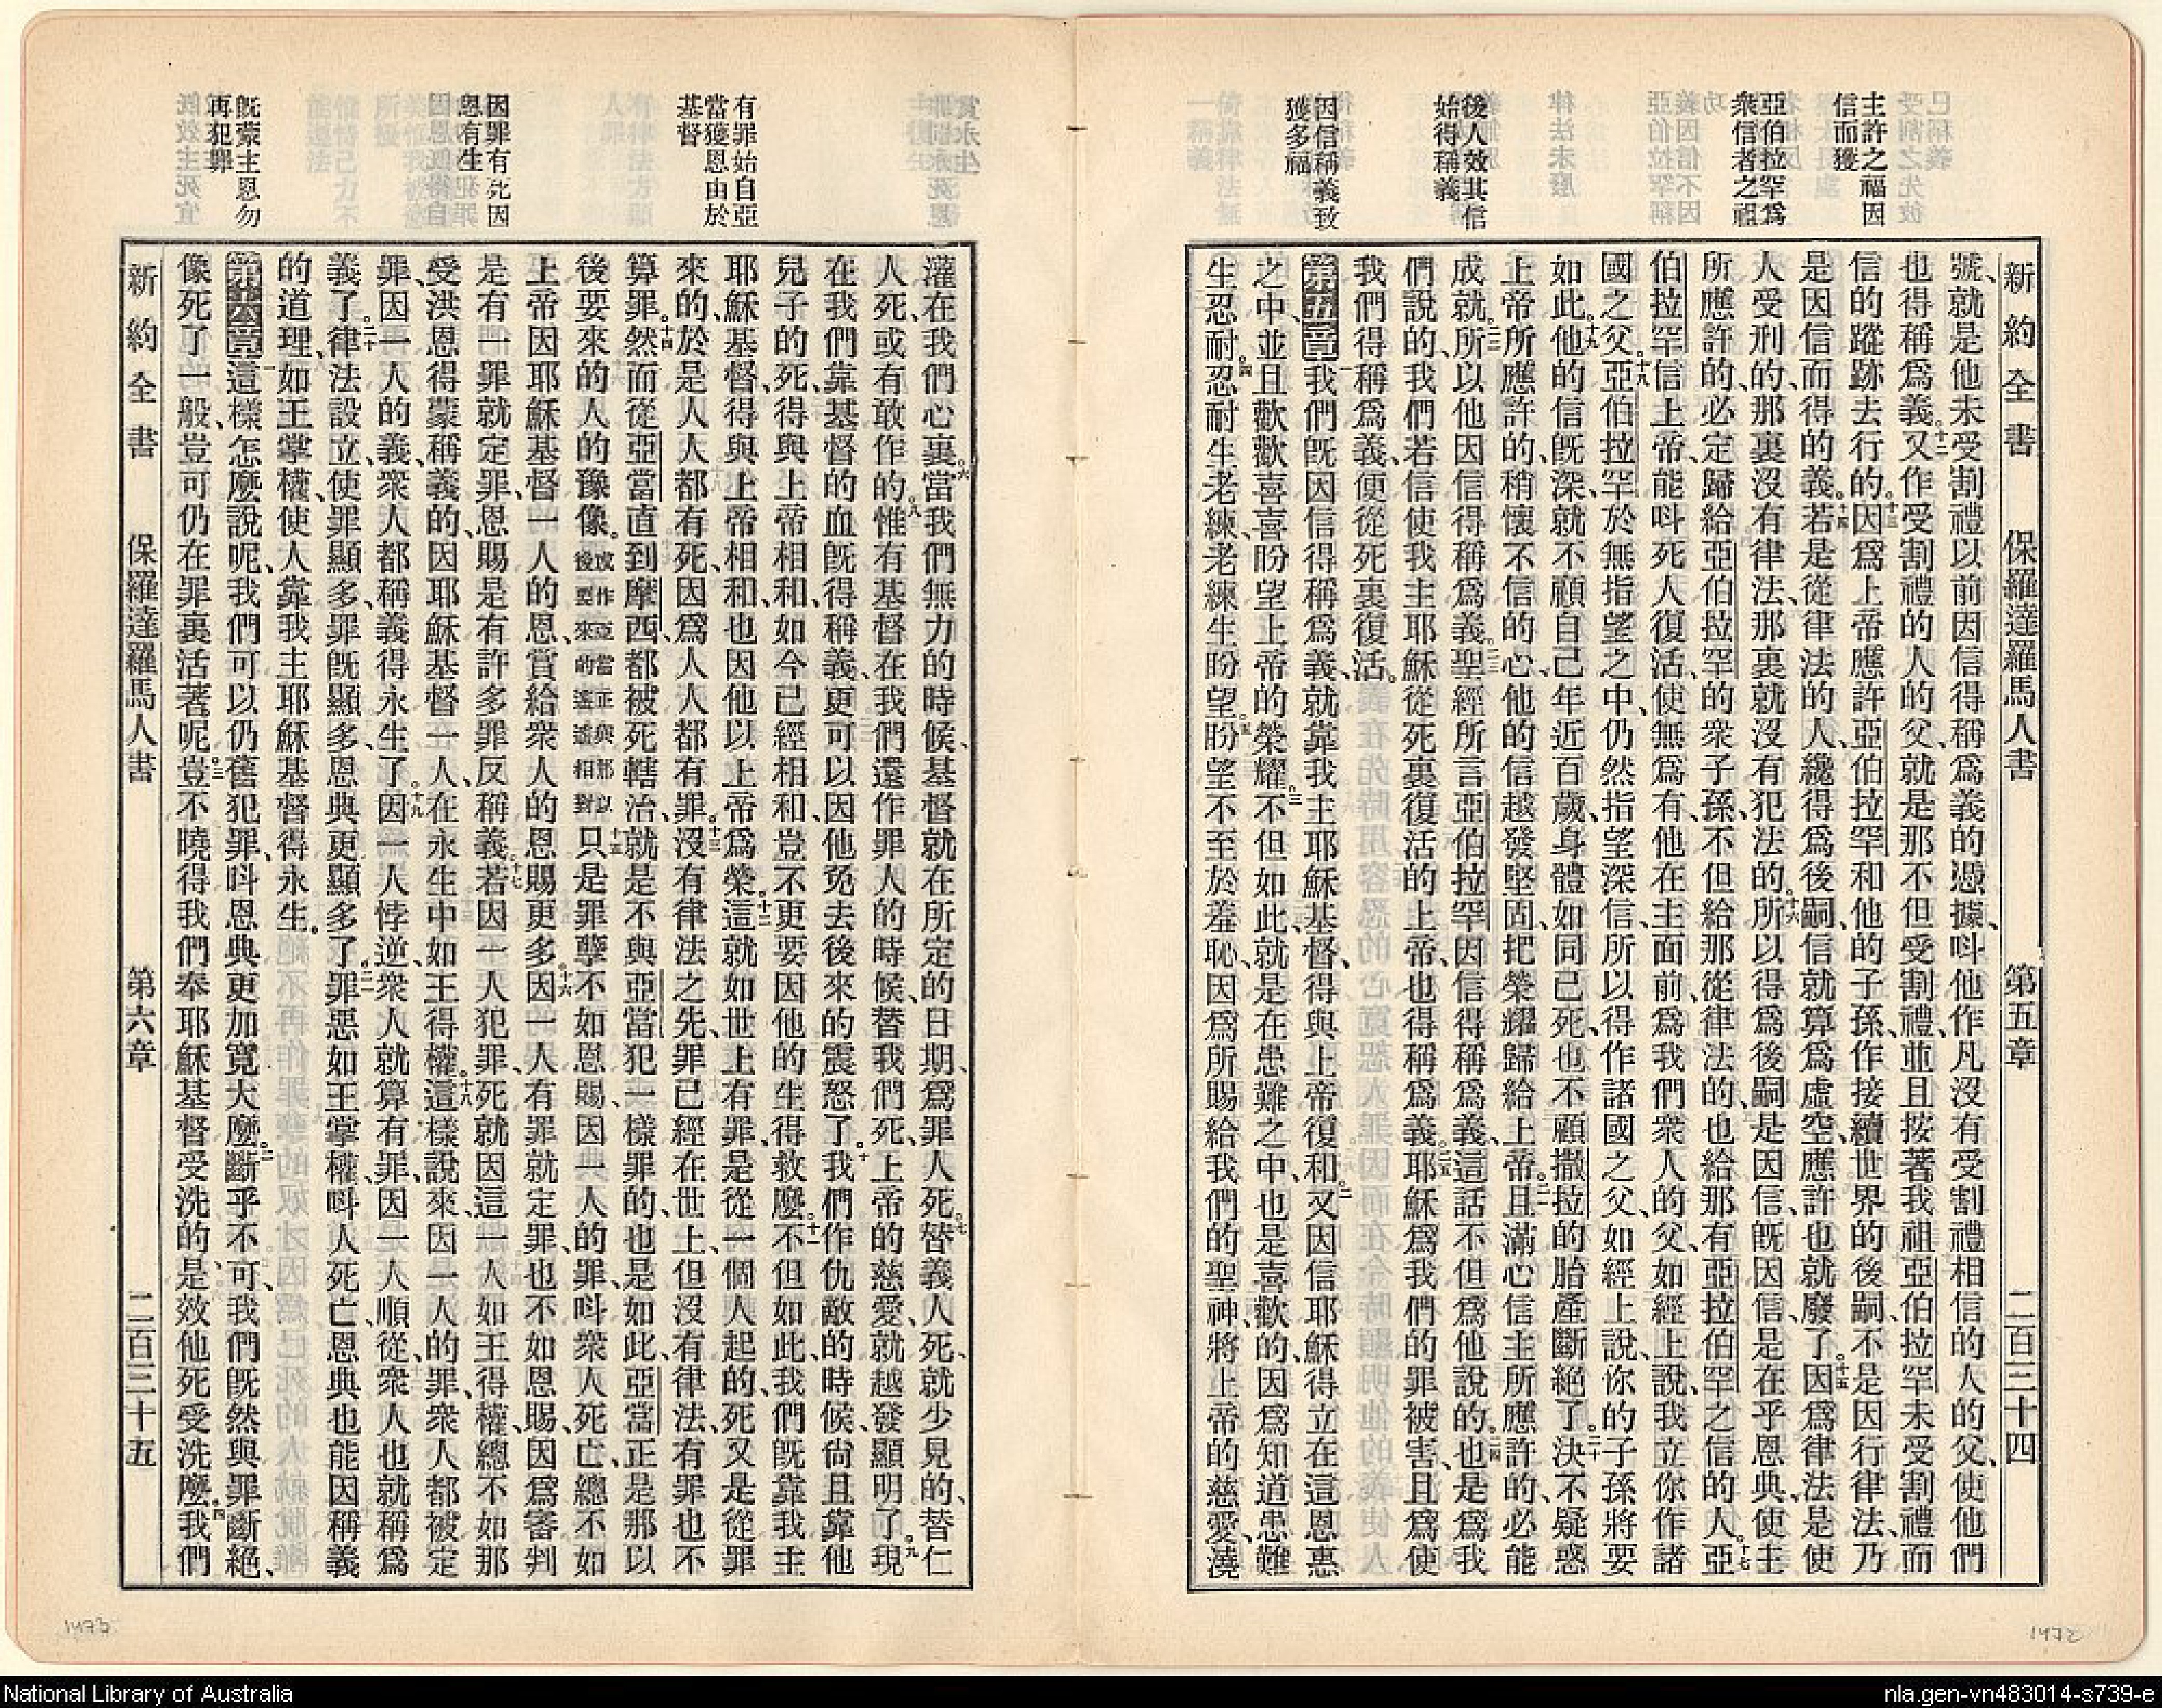 新約全書 保羅達羅馬人書 第五章 二百三十四
主許之福因
信而獲
亞伯拉罕爲
衆信者之祖
後人效其信
始得稱義
因信稱義致
獲多福
號、就是他未受割禮以前因信得稱爲義的憑據、呌他作凡沒有受割禮相信的人的父、使他們
也得稱爲義。十二又作受割禮的人的父、就是那不但受割禮、並且按著我祖亞伯拉罕未受割禮而
信的蹤跡去行的。十三因爲上帝應許亞伯拉罕和他的子孫、作接續世界的後嗣、不是因行律法、乃
是因信而得的義。十四若是從律法的人、纔得爲後嗣、信就算爲虛空、應許也就廢了。十五因爲律法是使
人受刑的、那裏沒有律法、那裏就沒有犯法的。十六所以得爲後嗣、是因信、旣因信、是在乎恩典、使主
所應許的、必定歸給亞伯拉罕的衆子孫、不但給那從律法的、也給那有亞拉伯罕之信的人。十七亞
伯拉罕信上帝、能呌死人復活、使無爲有、他在主面前、爲我們衆人的父、如經上說、我立你作諸
國之父。十八亞伯拉罕於無指望之中、仍然指望深信、所以得作諸國之父、如經上說、你的子孫將要
如此。十九他的信旣深、就不顧自己年近百歲、身體如同已死、也不顧撒拉的胎產斷絕了。二十決不疑惑
上帝所應許的、稍懷不信的心、他的信越發堅固、把榮耀歸給上帝。二一且滿心信主所應許的、必能
成就。二二所以他因信得稱爲義。二三聖經所言亞伯拉罕因信得稱爲義、這話不但爲他說的。二四也是爲我
們說的、我們若信使我主耶穌從死裏復活的上帝、也得稱爲義。二五耶穌爲我們的罪被害、且爲使
我們得稱爲義、便從死裏復活。
第五章一我們旣因信得稱爲義、就靠我主耶穌基督、得與上帝復和。二又因信耶穌得立在這恩惠
之中、並且歡歡喜喜盼望上帝的榮耀。三不但如此、就是在患難之中、也是喜歡的、因爲知道患難
生忍耐。四忍耐生老練、老練生盼望。五盼望不至於羞恥、因爲所賜給我們的聖神、將上帝的慈愛、澆
有罪始自亞
當獲恩由於
基督
因罪有死因
恩有生
旣蒙主恩勿
再犯罪
灌在我們心裏。六當我們無力的時候、基督就在所定的日期、爲罪人死。七替義人死、就少見的、替仁
人死、或有敢作的。八惟有基督在我們還作罪人的時候、替我們死、上帝的慈愛、就越發顯明了。九現
在我們靠基督的血旣得稱義、更可以因他免去後來的震怒了。十我們作仇敵的時候、尙且靠他
兒子的死、得與上帝相和、如今已經相和、豈不更要因他的生得救麼。十一不但如此、我們旣靠我主
耶穌基督、得與上帝相和、也因他以上帝爲榮。十二這就如世上有罪、是從一個人起的、死又是從罪
來的、於是人人都有死、因爲人人都有罪。十三沒有律法之先、罪已經在世上、但沒有律法、有罪也不
算罪。十四然而從亞當直到摩西、都被死轄治、就是不與亞當犯一樣罪的、也是如此、亞當正是那以
後要來的人的豫像。或作亞當正與那以後要來的遙遙相對十五只是罪孽不如恩賜、因一人的罪、呌衆人死亡、總不如
上帝因耶穌基督一人的恩、賞給衆人的恩賜更多。十六因一人有罪就定罪、也不如恩賜、因爲審判
是有一罪就定罪、恩賜是有許多罪反稱義。十七若因一人犯罪、死就因這一人如王得權、總不如那
受洪恩得蒙稱義的、因耶穌基督一人、在永生中如王得權。十八這樣說來、因一人的罪、衆人都被定
罪、因一人的義、衆人都稱義得永生了。十九因一人悖逆、衆人就算有罪、因一人順從、衆人也就稱爲
義了。二十律法設立、使罪顯多、罪旣顯多、恩典更顯多了。二一罪惡如王掌權、呌人死亡、恩典也能因稱義
的道理、如王掌權、使人靠我主耶穌基督得永生。
第六章一這樣怎麼說呢、我們可以仍舊犯罪、呌恩典更加寬大麼。二斷乎不可、我們旣然與罪斷絕、
像死了一般、豈可仍在罪裏活著呢。三豈不曉得我們奉耶穌基督受洗的、是效他死受洗麼。四我們
新約全書 保羅達羅馬人書 第六章 二百三十五
1473
1472
National Library of Australia
nla.gen-vn483014-s739-e